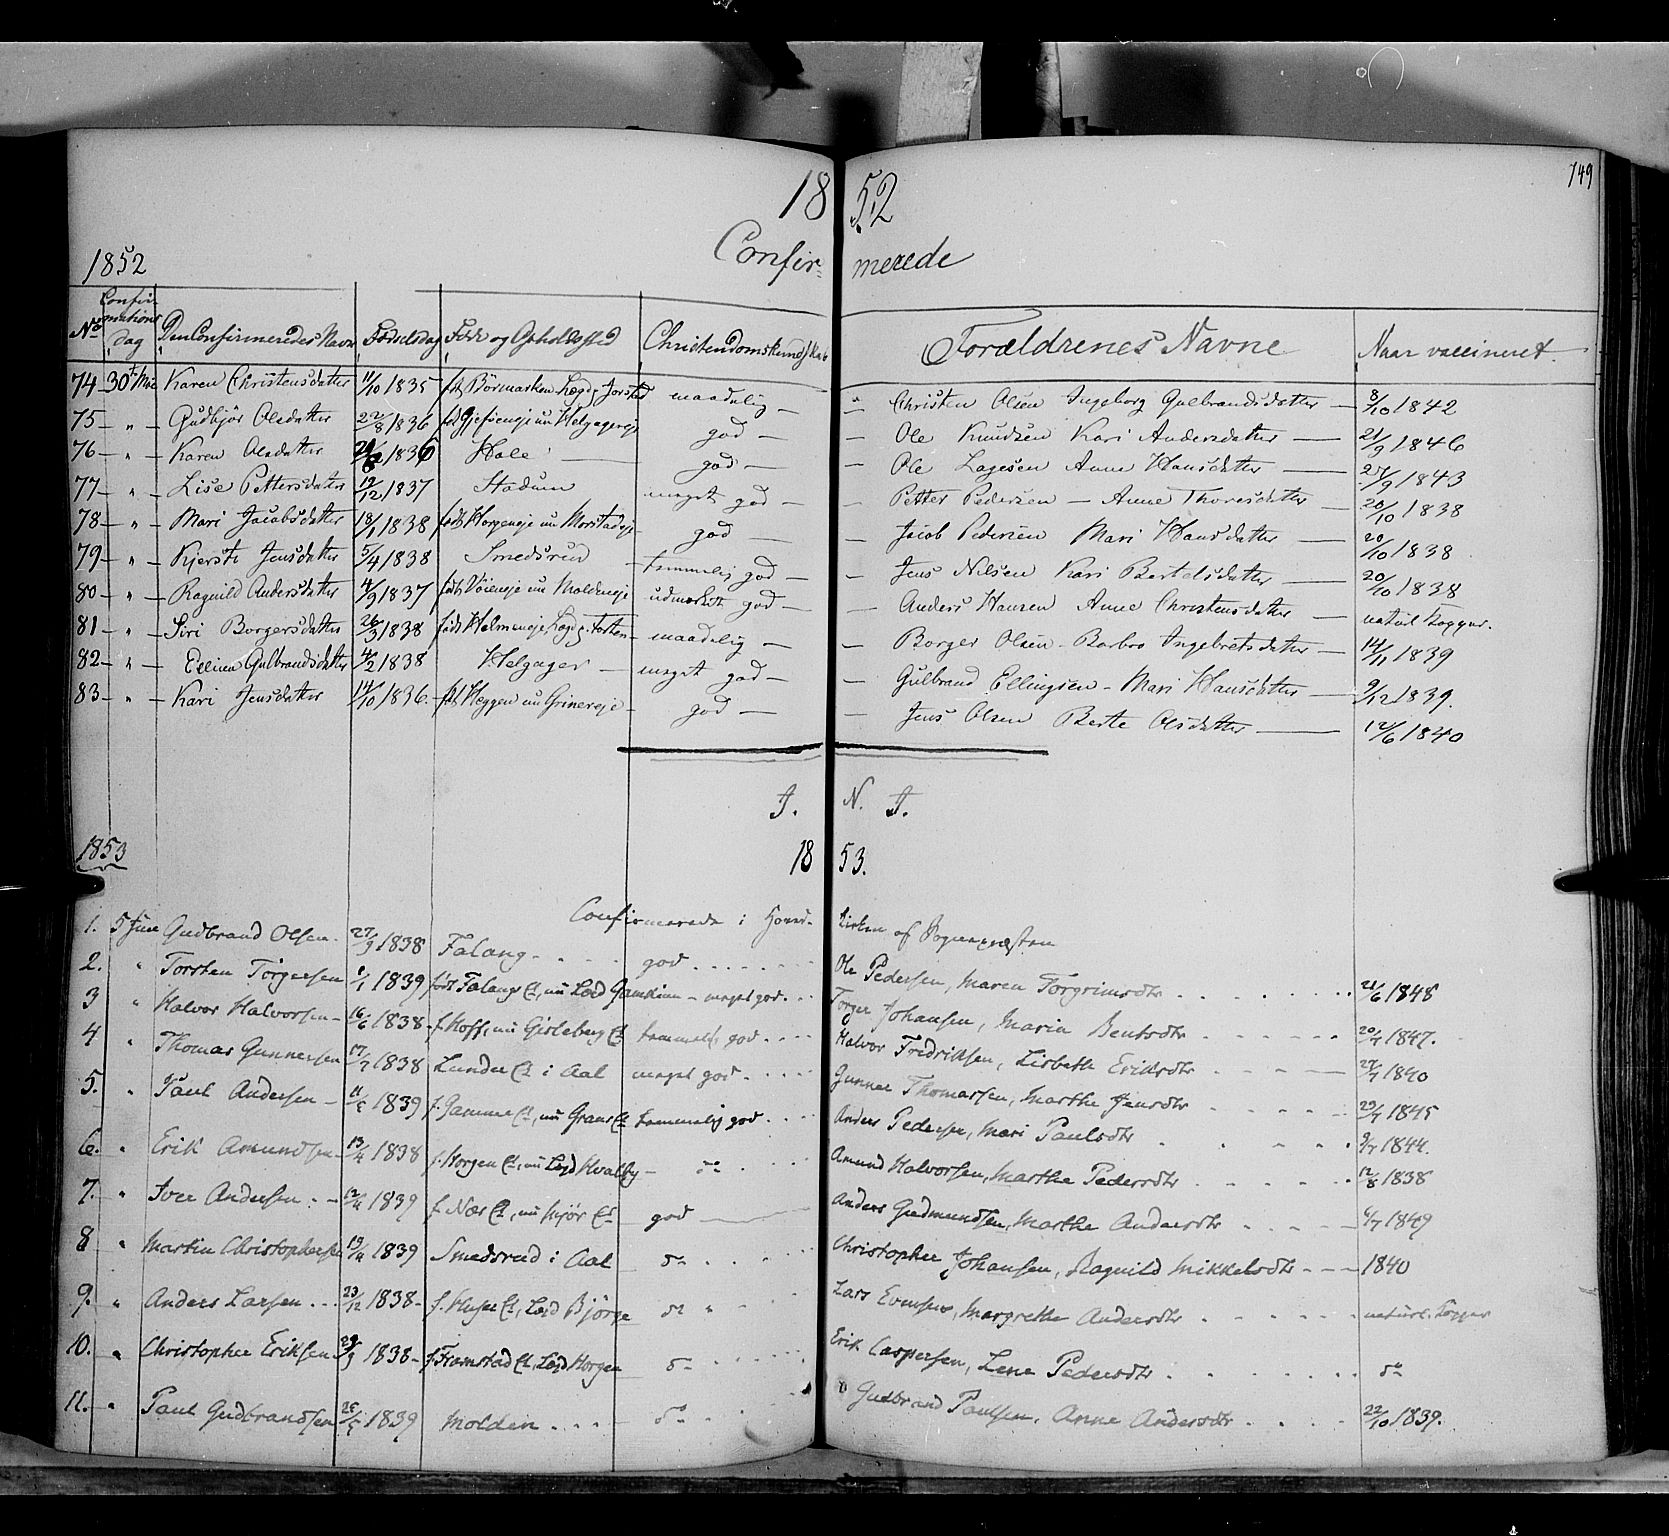 749
18 52
1852 Confir- merede
No Confirmations Dag Den Confirmeredes Navn Fødselsdag Føde og Opholdssted Christendomskundskab Forældrenes Navne Naar vaccineret.
74 30te Mai Karen Christensdatter 11/10 1835 Børmarken Lægd g Jorstad maadelig Christen Olsen Ingeborg Gulbrandsdatter 8/10 1842
75 " Gudbjør Olsdatter 22/8 1836 nu god Ole Knudsen Kari Andersdatter 21/9 1846
76 " Karen Olsdatter 1836 Hole god Ole Lagesen Anne Hansdatter 27/9 1843
77 " Lise Pettersdatter 19/12 1837 Stadum meget god Petter Pedersen Anne Thoresdatter 20/10 1838
78 " Mari Jacobsdatter 18/1 1838 født Horgeneje nu Morstadeje god Jacob Pedersen Mari Hansdatter 20/10 1838
79 " Kjersti Jensdatter 5/4 1838 Smedsrud temmelig god Jens Nilsen Kari Bertelsdatter 20/10 1838
80 " Ragnild Andersdatter 4/9 1837 født nu Moldeneje udmærket god Anders Hansen Anne Christensdatter naturl Kopper.
81 " Siri Borgersdatter 26/3 1838 født Holmeneje Lægd g. maadelig Borger Olsen Barbro Ingebretsdatter 14/11 1839
82 " Gulbrandsdatter 4/2 1838 Helgager meget god Gulbrand Ellingsen Mari Hansdatter 9/12 1839.
83 " Kari Jensdatter 14/10 1836. Hæggen nu Grinereje god Jens Olsen Berte Olsdatter 12/6 1840
J. N. J.
1853 18 53.
Confirmerede i Hoved- kirken af Sognepræsten
1. 5 June Gudbrand Olsen 27/9 1838 Falang god Ole Pedersen, Maren Torgrimsdtr 21/6 1848
2. " Torsten Torgersen 1/1 1839 født Falangs Et, nu Lægd Gamkinn meget god Torger Johansen, Maria Bentsdtr 20/7 1847.
3 " Halvor Halvorsen 16/6 1838 f. Hoff, nu Gisleberg Et temmelig god Halvor Fredriksen, Lisbeth Eriksdtr 27/7 1840
4 " Thomas Gunnersen 17/7 1838 Lunder Et i Aal meget god Gunner Thomassen, Marthe Jensdtr 29/7 1845
5. " Paul Andersen 1839 f. Gamme Et, nu Grans Et temmelig god Anders Pedersen, Mari Paulsdtr 9/7 1844.
6. " Erik Amundsen 13/4 1838 f. Horgen Et, nu Lægd Hvalby do Amund Halvorsen, Marthe Pedersdtr 12/8 1838
7. " Iver Andersen 12/4 1839 f Nær Et, nu Kjør Et god Anders Gudmundsen, Marthe Andersdtr 6/7 1849
8 " Martin Christophersen 19/4 1839 Smedsrud i Aal do Christopher Johansen, Ragnild Mikkelsdtr 1840
9. " Anders Larsen 23/12 1838 f. Et, Lægd Bjørge do Lars Evensen, Margrethe Andersdtr naturl. Kopper
10. " Christopher Eriksen 29/9 1838 f Framstad Et, Lægd Horgen do Erik Caspersen, Lene Pedersdtr do
11. " Paul Gudbrandsen 1839 Molden do Gudbrand Paulsen, Anne Andersdtr 22/10 1839.